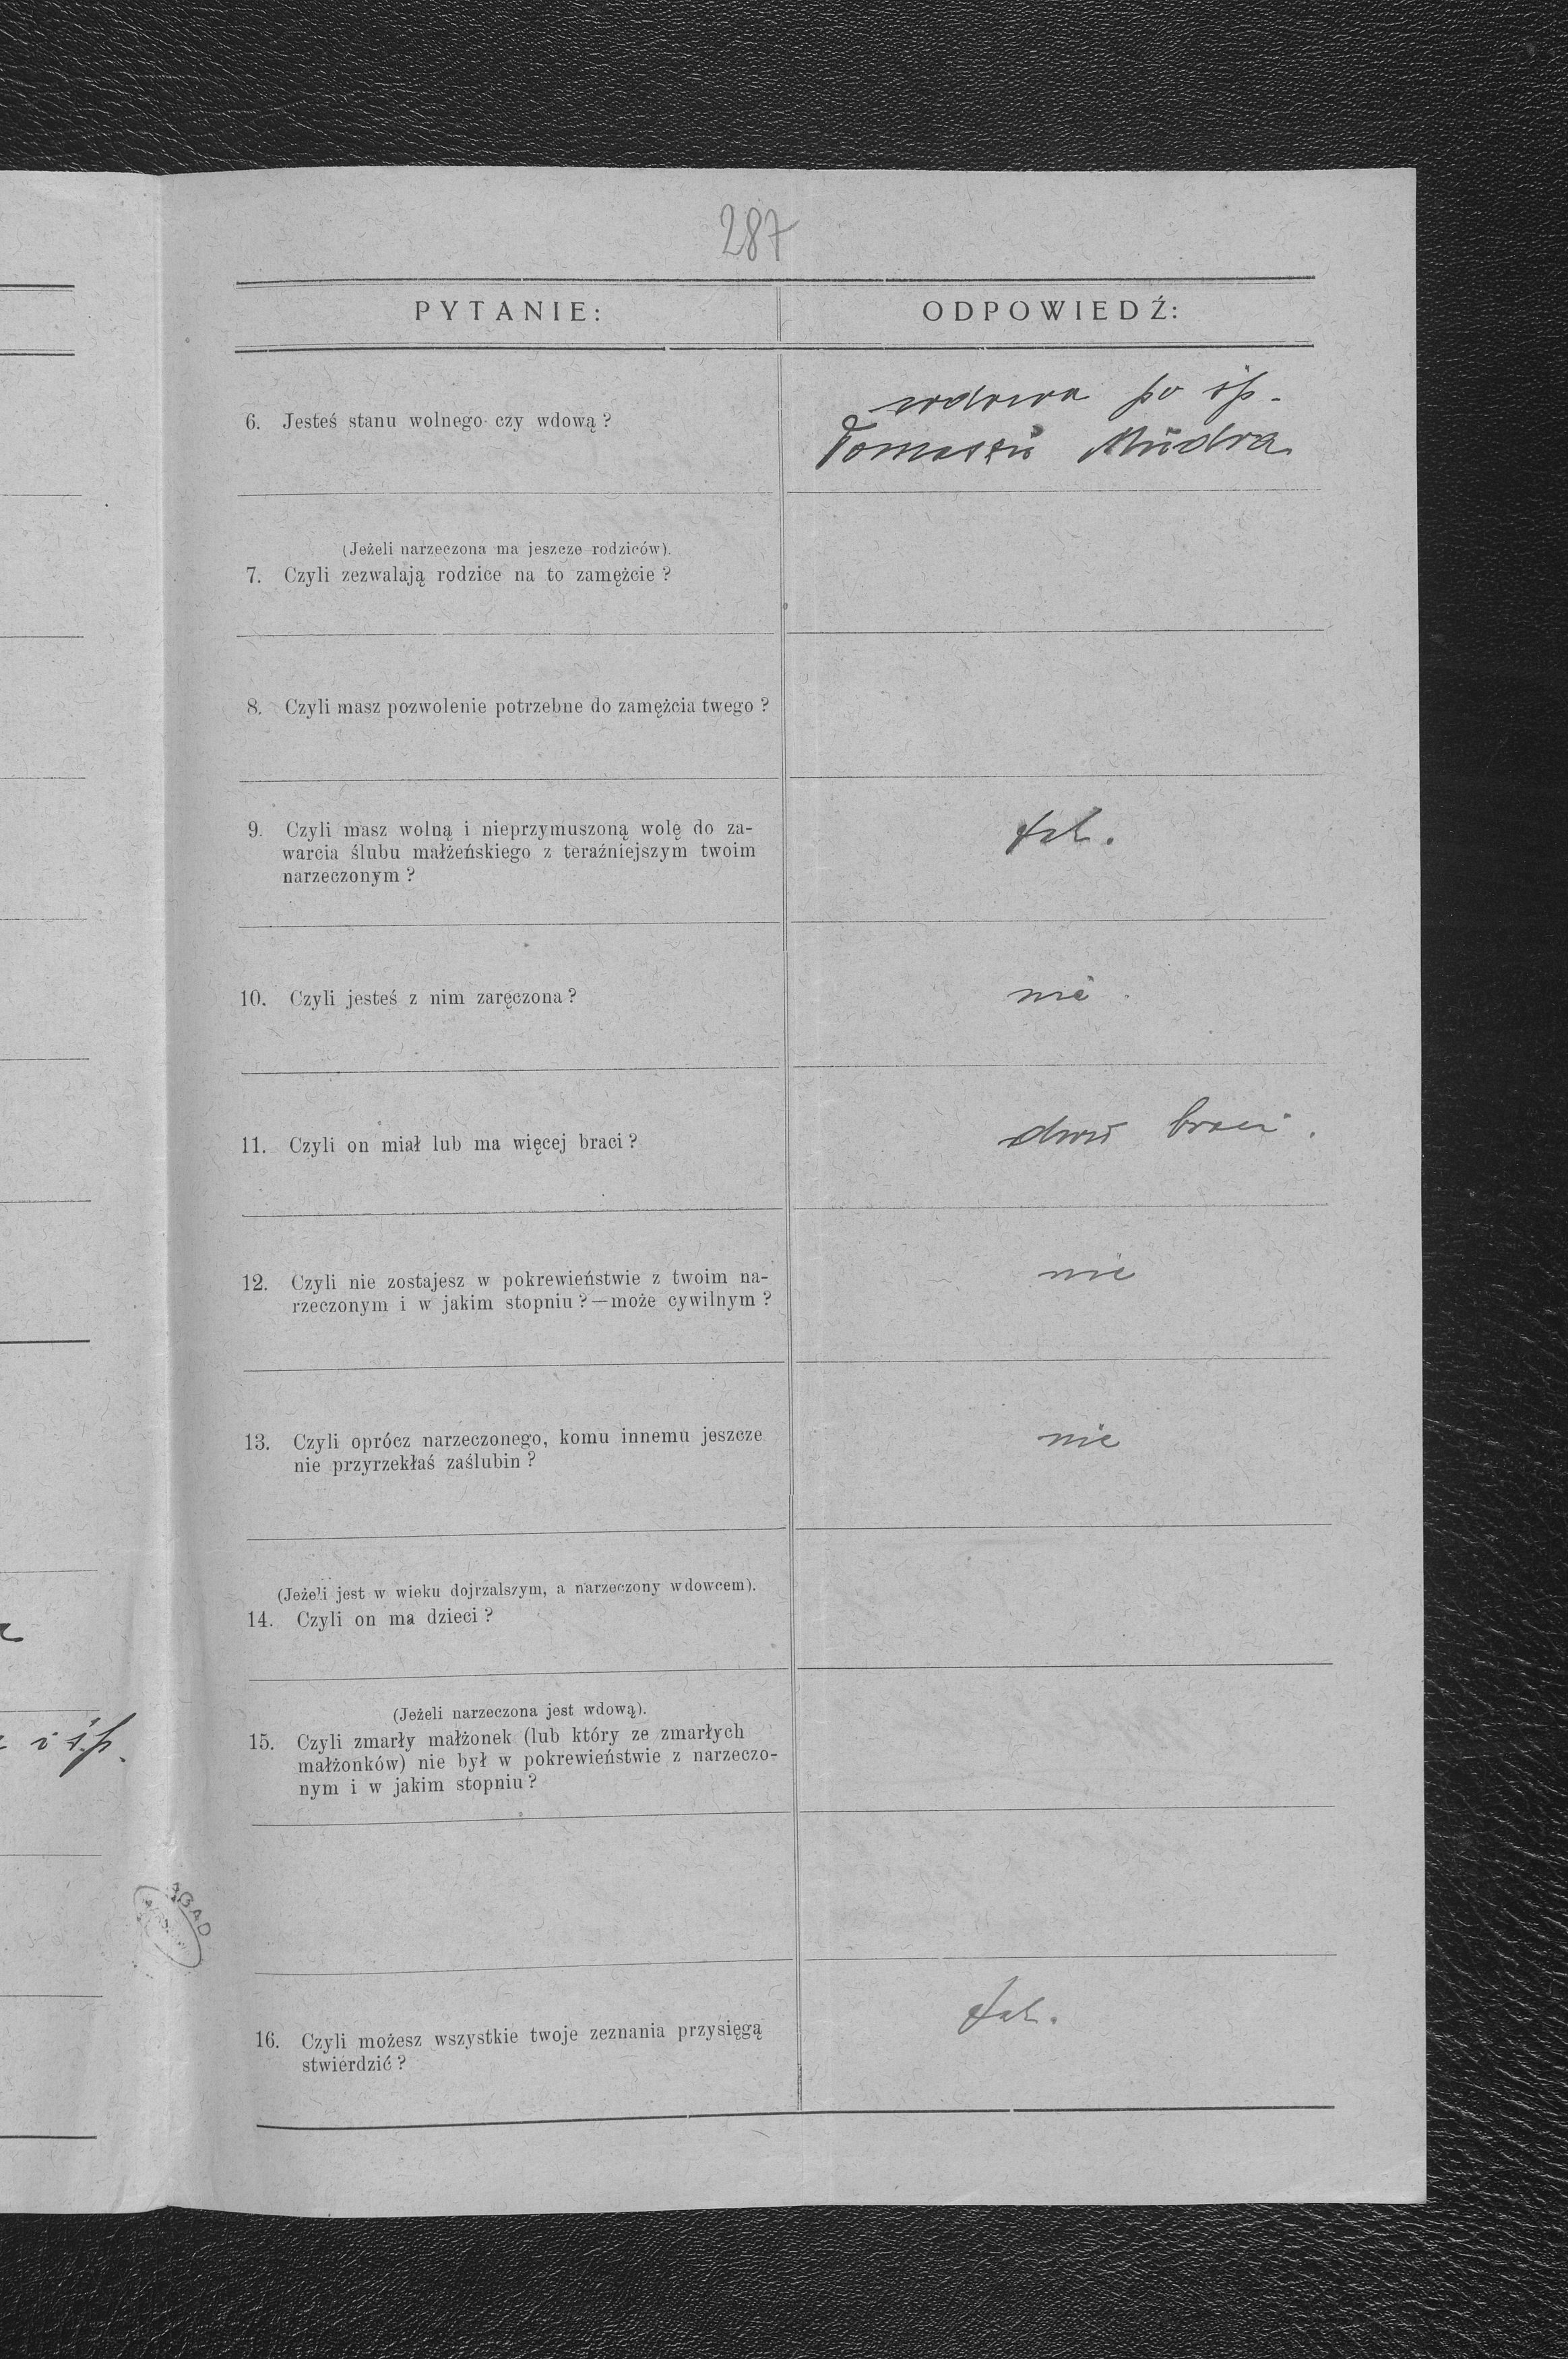 287
PYTANIE:
ODPOWIEDŹ:
6. Jesteś stanu wolnego czy wdową ?
wdowa po śp.
Tomaszu Mudra
(Jeżeli narzeczona ma jeszcze rodziców).
7. Czyli zezwalają rodzice na to zamężcie ?
8. Czyli masz pozwolenie potrzebne do zamężcia twego ?
9. Czyli masz wolną i nieprzymuszoną wolę do za-
warcia ślubu małżeńskiego z teraźniejszym twoim
narzeczonym ?
tak.
10. Czyli jesteś z nim zaręczona ?
nie.
11. Czyli on miał lub ma więcej braci ?
dwu braci.
12. Czyli nie zostajesz w pokrewieństwie z twoim na-
rzeczonym i w jakim stopniu ? — może cywilnym ?
nie
13. Czyli oprócz narzeczonego, komu innemu jeszcze
nie przyrzekłaś zaślubin ?
nie
(Jeżeli jest w wieku dojrzalszym, a narzeczony wdowcem).
14. Czyli on ma dzieci ?
(Jeżeli narzeczona jest wdową).
15. Czyli zmarły małżonek (lub który ze zmarłych
małżonków) nie był w pokrewieństwie z narzeczo-
nym i w jakim stopniu ?
i śp.
16. Czyli możesz wszystkie twoje zeznania przysięgą
stwierdzić ?
tak.